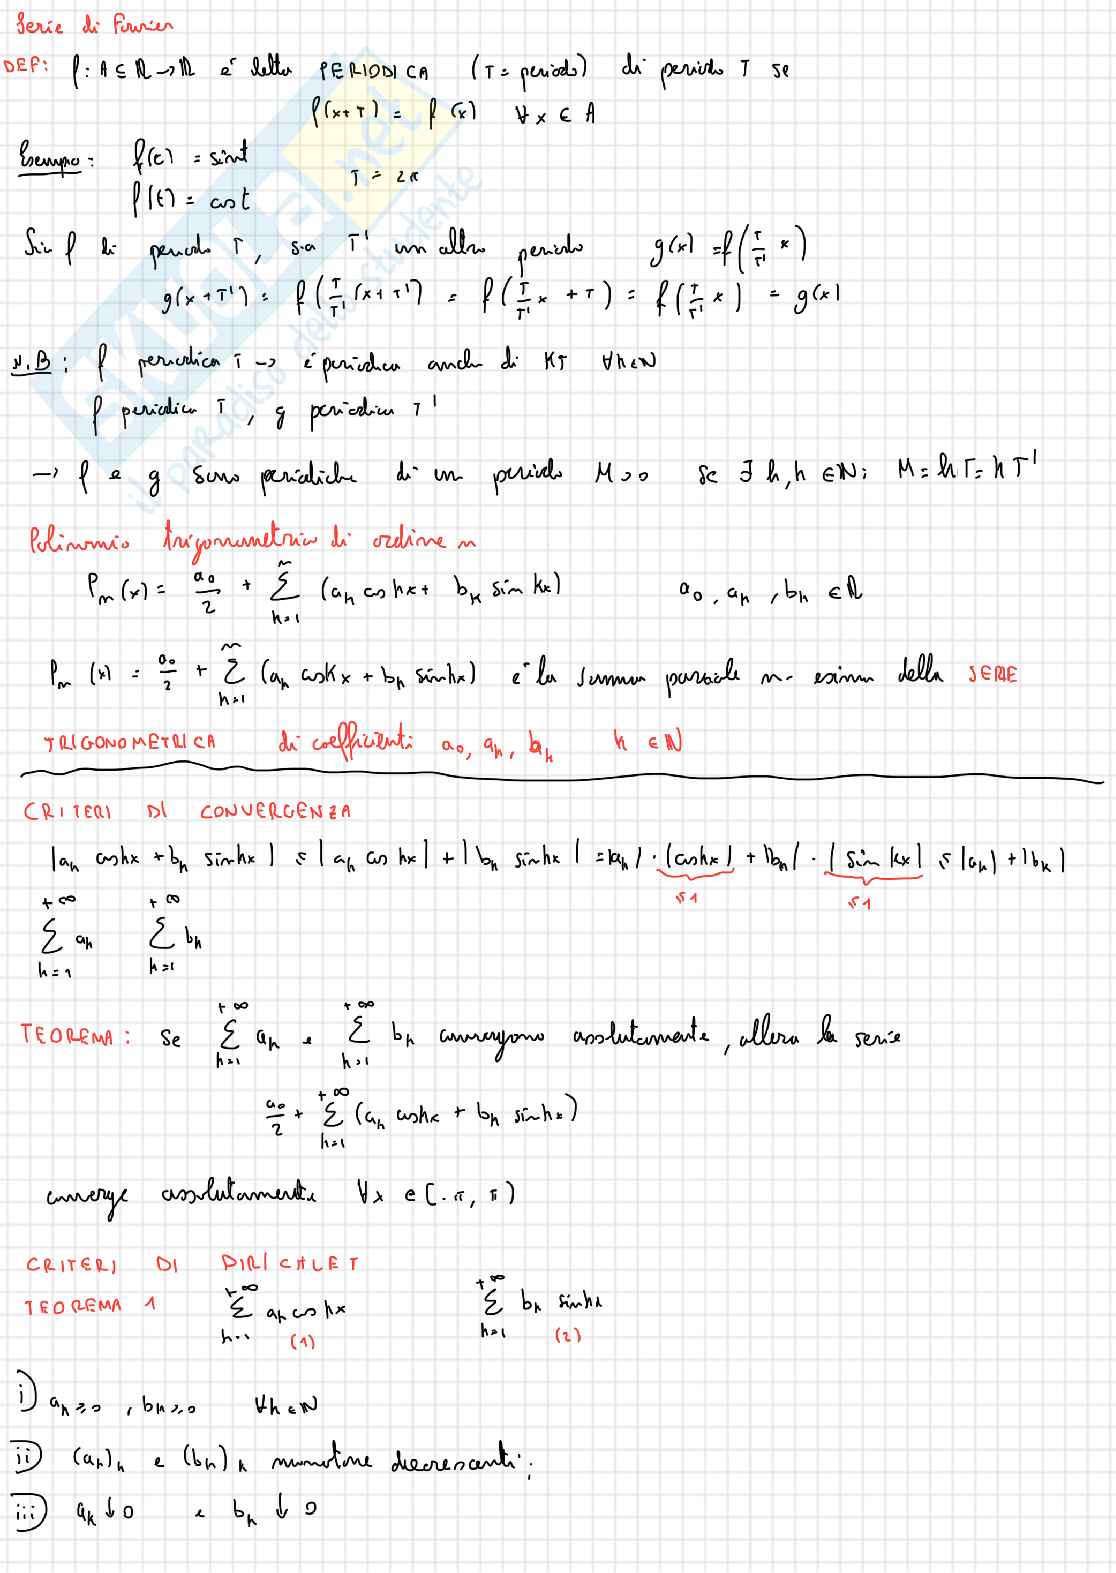 Serie di Fourier
DEF: f: A ⊆ ℝ → ℝ è detta PERIODICA (T = periodo) di periodo T se
f(x+T) = f(x) ∀x ∈ A
Esempio: f(t) = sint
T = 2π
f(t) = cos t
Sia f di periodo T, sia T' un altro periodo g(x) = f(T/T' x)
g(x+T') = f(T/T' (x+T')) = f(T/T' x + T) = f(T/T' x) = g(x)
N.B: f periodica T → è periodica anche di KT ∀k∈ℕ
f periodica T, g periodica T'
→ f e g sono periodiche di un periodo M>0 se ∃ h,k ∈ℕ: M = hT = kT'
Polinomio trigonometrico di ordine n
Pn(x) = a0/2 + Σ_{k=1}^{n} (ak cos kx + bk sin kx) a0, ak, bk ∈ ℝ
Pn(x) = a0/2 + Σ_{k=1}^{n} (ak cos kx + bk sin kx) è la somma parziale n-esima della SERIE
TRIGONOMETRICA di coefficienti a0, ak, bk k ∈ ℕ
CRITERI DI CONVERGENZA
|ak cos kx + bk sin kx| ≤ |ak cos kx| + |bk sin kx| = |ak| · |cos kx| + |bk| · |sin kx| ≤ |ak| + |bk|
≤1 ≤1
Σ_{k=1}^{+∞} ak Σ_{k=1}^{+∞} bk
TEOREMA: Se Σ_{k=1}^{+∞} ak e Σ_{k=1}^{+∞} bk convergono assolutamente, allora la serie
a0/2 + Σ_{k=1}^{+∞} (ak cos kx + bk sin kx)
converge assolutamente ∀x ∈ [-π, π]
CRITERI DI DIRICHLET
TEOREMA 1 Σ_{k=1}^{+∞} ak cos kx (1) Σ_{k=1}^{+∞} bk sin kx (2)
i) ak ≥ 0, bk ≥ 0 ∀k ∈ ℕ
ii) (ak)k e (bk)k monotone decrescenti;
iii) ak ↓ 0 e bk ↓ 0
SKUOLA.net
il paradiso dello studente